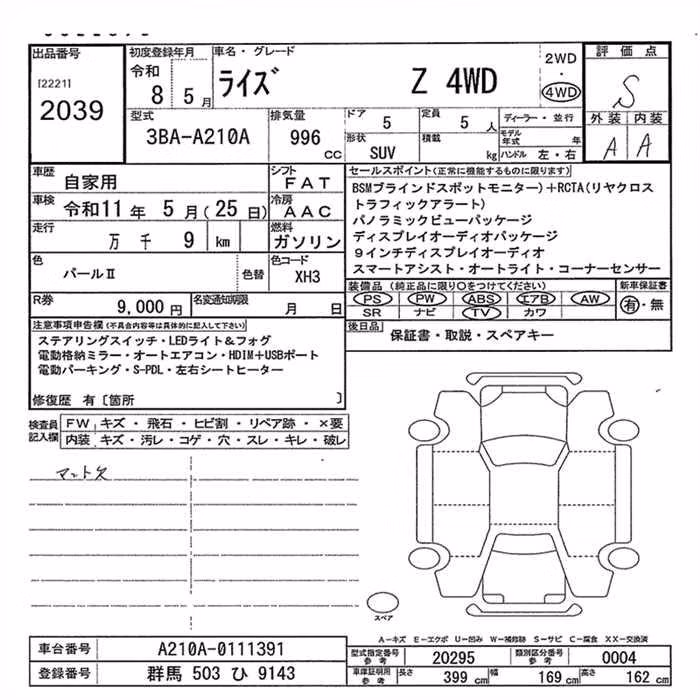 出品番号
[2221]
2039
初度登録年月
令和
8 5月
車名・グレード
ライズ Z 4WD
2WD
・
4WD
評価点
S
外装 内装
A A
型式
3BA-A210A
排気量
996 cc
ドア
5
定員
5 人
形状
SUV
積載
kg
ディーラー・並行
モデル年式 年
ハンドル 左・右
車歴
自家用
シフト
FAT
車検
令和11年 5月(25日)
冷房
AAC
走行
万 千 9 km
燃料
ガソリン
色
パールⅡ
色替
色コード
XH3
R券
9,000 円
名変通知期限
月 日
セールスポイント(正常に機能するものに限ります)
BSMブラインドスポットモニター)+RCTA(リヤクロス
トラフィックアラート)
パノラミックビューパッケージ
ディスプレイオーディオパッケージ
9インチディスプレイオーディオ
スマートアシスト・オートライト・コーナーセンサー
装備品(純正品に限り○をつけてください)
PS PW ABS エアB AW
SR ナビ TV カワ
新車保証書
有・無
後日品
保証書・取説・スペアキー
注意事項申告欄(不具合内容等は具体的に記入して下さい)
ステアリングスイッチ・LEDライト&フォグ
電動格納ミラー・オートエアコン・HDIM+USBポート
電動パーキング・S-PDL・左右シートヒーター
修復歴 有〔箇所 〕
検査員記入欄
FW キズ・飛石・ヒビ割・リペア跡・×要
内装 キズ・汚レ・コゲ・穴・スレ・キレ・破レ
マット欠
スペア
A-キズ E-エクボ U-凹み W-補修跡 S-サビ C-腐食 XX-交換済
車台番号
A210A-0111391
登録番号
群馬 503 ひ 9143
型式指定番号
参考
20295
類別区分番号
参考
0004
車庫証明用
参考
長さ
399 cm
幅
169 cm
高さ
162 cm